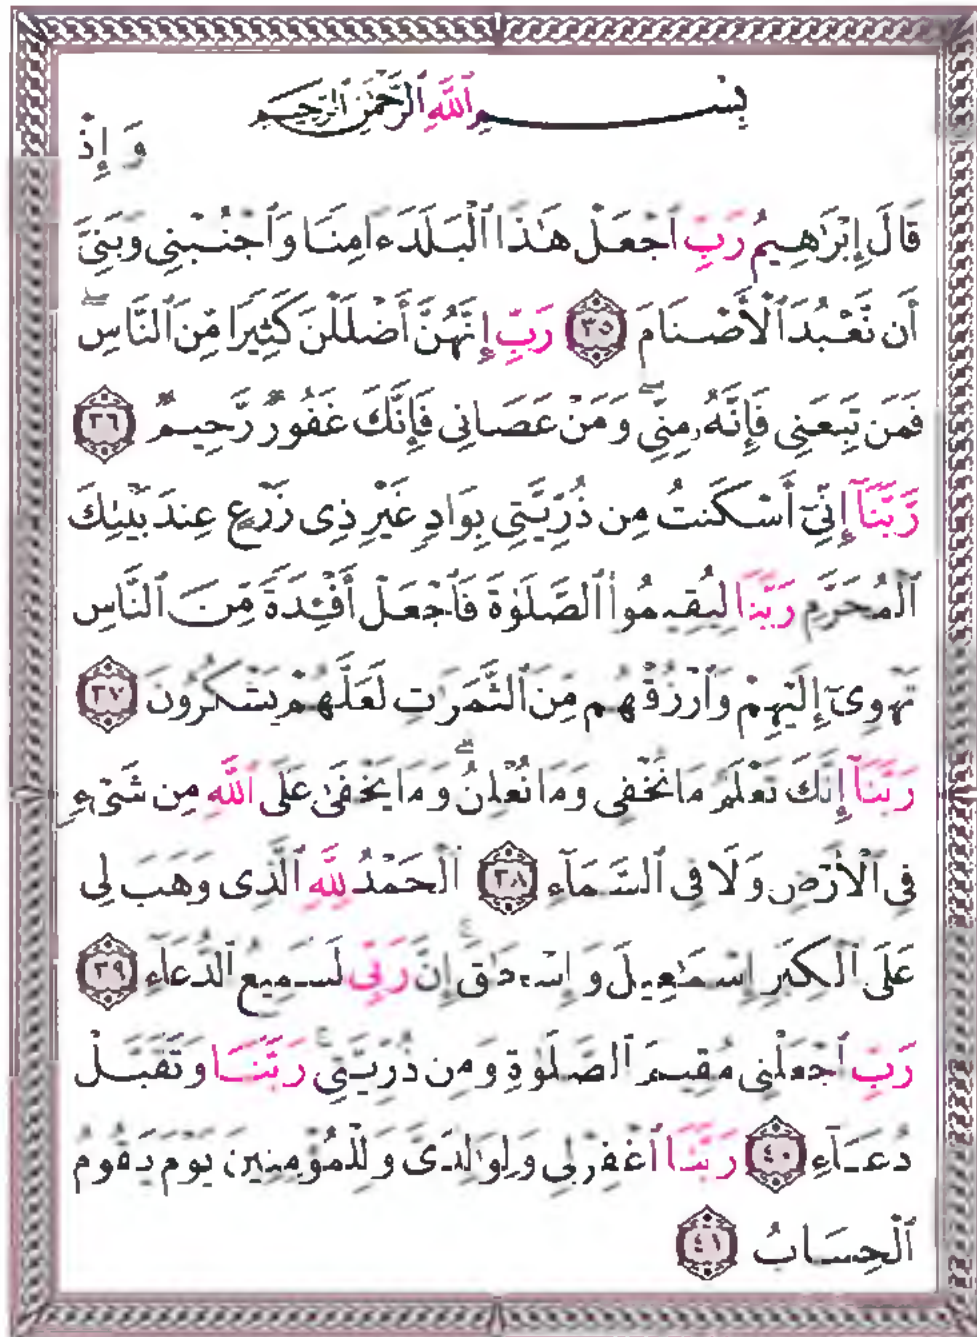 بِسْمِ ٱللَّهِ ٱلرَّحْمَٰنِ ٱلرَّحِيمِ
وَإِذْ
قَالَ إِبْرَٰهِيمُ رَبِّ ٱجْعَلْ هَٰذَا ٱلْبَلَدَ ءَامِنًا وَٱجْنُبْنِى وَبَنِىَّ
أَن نَّعْبُدَ ٱلْأَصْنَامَ ٣٥ رَبِّ إِنَّهُنَّ أَضْلَلْنَ كَثِيرًا مِّنَ ٱلنَّاسِ ۖ
فَمَن تَبِعَنِى فَإِنَّهُۥ مِنِّى ۖ وَمَنْ عَصَانِى فَإِنَّكَ غَفُورٌ رَّحِيمٌ ٣٦
رَّبَّنَآ إِنِّىٓ أَسْكَنتُ مِن ذُرِّيَّتِى بِوَادٍ غَيْرِ ذِى زَرْعٍ عِندَ بَيْتِكَ
ٱلْمُحَرَّمِ رَبَّنَا لِيُقِيمُوا۟ ٱلصَّلَوٰةَ فَٱجْعَلْ أَفْـِٔدَةً مِّنَ ٱلنَّاسِ
تَهْوِىٓ إِلَيْهِمْ وَٱرْزُقْهُم مِّنَ ٱلثَّمَرَٰتِ لَعَلَّهُمْ يَشْكُرُونَ ٣٧
رَبَّنَآ إِنَّكَ تَعْلَمُ مَا نُخْفِى وَمَا نُعْلِنُ ۗ وَمَا يَخْفَىٰ عَلَى ٱللَّهِ مِن شَىْءٍ
فِى ٱلْأَرْضِ وَلَا فِى ٱلسَّمَآءِ ٣٨ ٱلْحَمْدُ لِلَّهِ ٱلَّذِى وَهَبَ لِى
عَلَى ٱلْكِبَرِ إِسْمَٰعِيلَ وَإِسْحَٰقَ ۚ إِنَّ رَبِّى لَسَمِيعُ ٱلدُّعَآءِ ٣٩
رَبِّ ٱجْعَلْنِى مُقِيمَ ٱلصَّلَوٰةِ وَمِن ذُرِّيَّتِى ۚ رَبَّنَا وَتَقَبَّلْ
دُعَآءِ ٤٠ رَبَّنَا ٱغْفِرْ لِى وَلِوَٰلِدَىَّ وَلِلْمُؤْمِنِينَ يَوْمَ يَقُومُ
ٱلْحِسَابُ ٤١